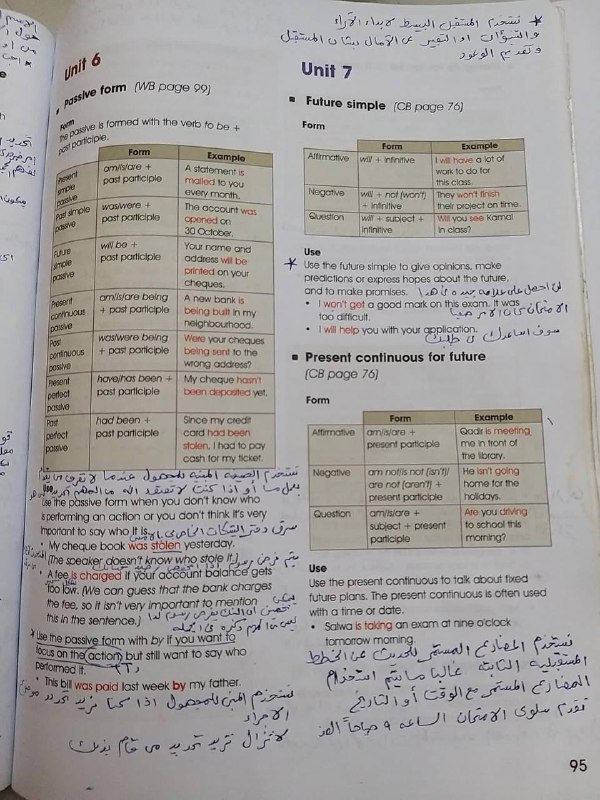 Unit 6
Passive form (WB page 99)
Form
the passive is formed with the verb to be +
past participle.
Form Example
Present simple passive am/is/are + past participle A statement is mailed to you every month.
Past simple passive was/were + past participle The account was opened on 30 October.
Future simple passive will be + past participle Your name and address will be printed on your cheques.
Present continuous passive am/is/are being + past participle A new bank is being built in my neighbourhood.
Past continuous passive was/were being + past participle Were your cheques being sent to the wrong address?
Present perfect passive have/has been + past participle My cheque hasn't been deposited yet.
Past perfect passive had been + past participle Since my credit card had been stolen, I had to pay cash for my ticket.
نستخدم الصيغة المبنية للمجهول عندما لا تعرف من
Use
Use the passive form when you don't know who
is performing an action or you don't think it's very
important to say who it is.
سرق دفتر الشيكات الخاص بي بالأمس
• My cheque book was stolen yesterday.
(The speaker doesn't know who stole it.)
• A fee is charged if your account balance gets
too low. (We can guess that the bank charges
the fee, so it isn't very important to mention
this in the sentence.)
* Use the passive form with by if you want to
focus on the action but still want to say who
performed it.
• This bill was paid last week by my father.
نستخدم المبني للمجهول اذا كنا نريد تحديد
الاجراء
لا تزال تريد تحديد من قام بذلك
* نستخدم المستقبل البسيط لابداء الآراء
والتنبؤات او التعبير عن الآمال بشان المستقبل
وتقديم الوعود
Unit 7
Future simple (CB page 76)
Form
Form Example
Affirmative will + infinitive I will have a lot of work to do for this class.
Negative will + not (won't) + infinitive They won't finish their project on time.
Question will + subject + infinitive Will you see Kamal in class?
Use
* Use the future simple to give opinions, make
predictions or express hopes about the future,
and to make promises.
لن احصل على علامة جيدة في هذا
• I won't get a good mark on this exam. It was
too difficult.
الامتحان كان الامر صعبا
• I will help you with your application.
سوف اساعدك في طلبك
Present continuous for future
(CB page 76)
Form
Form Example
Affirmative am/is/are + present participle Qadir is meeting me in front of the library.
Negative am not/is not (isn't)/ are not (aren't) + present participle He isn't going home for the holidays.
Question am/is/are + subject + present participle Are you driving to school this morning?
Use
Use the present continuous to talk about fixed
future plans. The present continuous is often used
with a time or date.
• Salwa is taking an exam at nine o'clock
tomorrow morning.
نستخدم المضارع المستمر للحديث عن الخطط
المستقبلية الثابتة غالبا ما يتم استخدام
المضارع المستمر مع الوقت أو التاريخ
تقدم سلوى الامتحان الساعه ٩ صباحاً
95